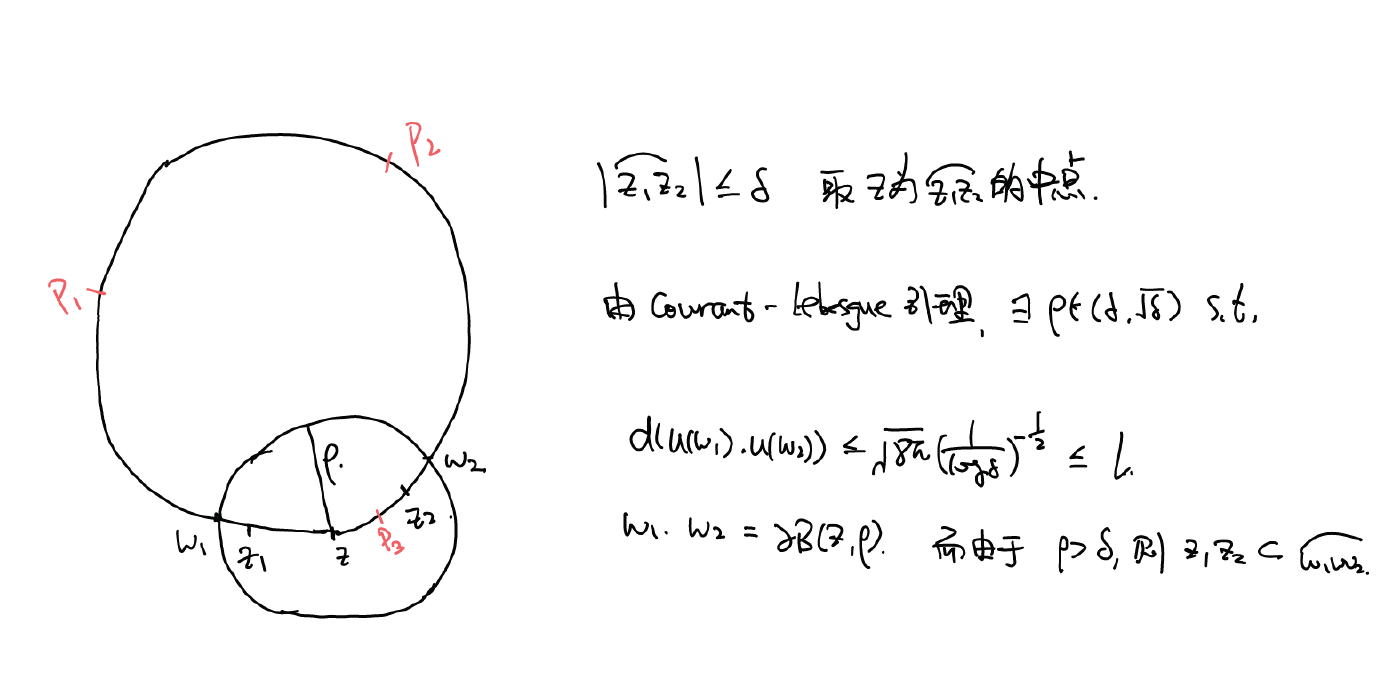 P₂
P₁
ρ.
w₁
z₁
z
P₃
z₂.
w₂
|z₁z₂| ≤ δ 取 z为 z₁z₂ 的中点.
由 Courant - Lebesgue 引理, ∃ ρ∈(δ.√δ) s.t.
d(u(w₁).u(w₂)) ≤ √8π (1/logδ)^{-1/2} ≤ l.
w₁. w₂ = ∂B(z,ρ). 而由于 ρ>δ, 则 z₁z₂ ⊂ w₁w₂.